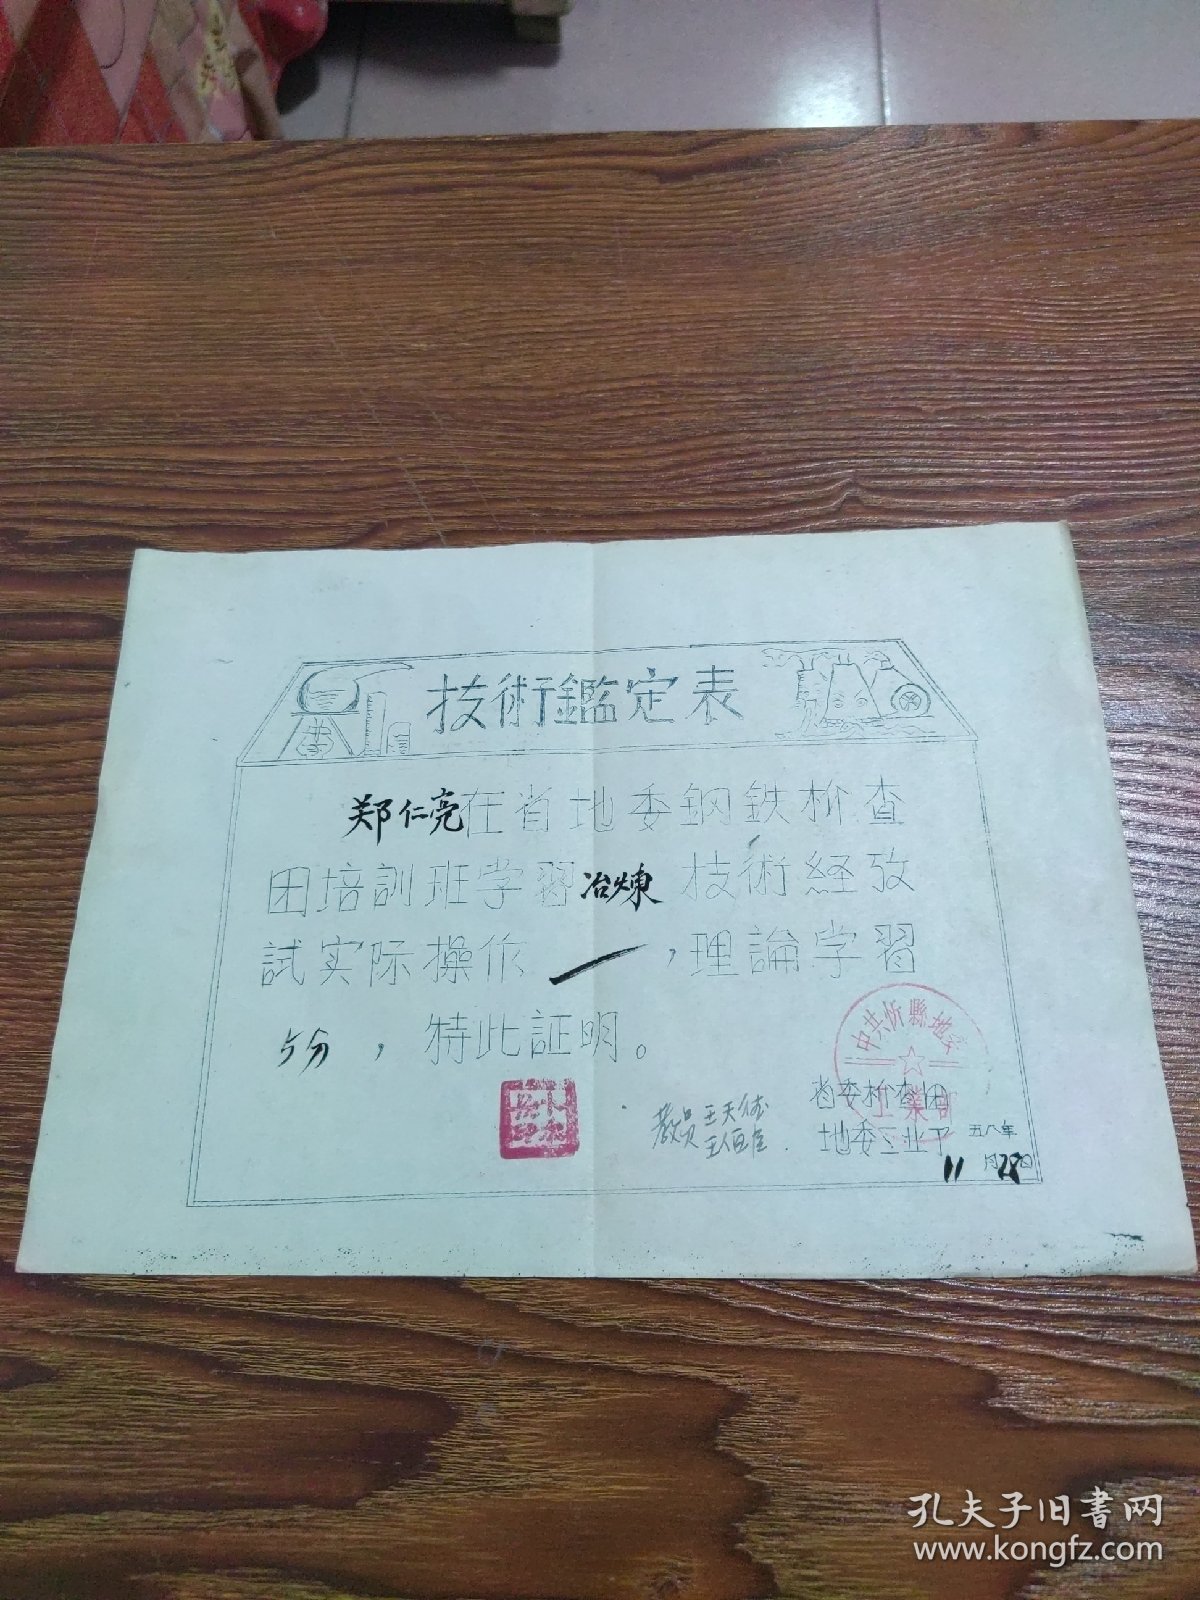 技術鑑定表
郑仁亮在省地委鋼鉄检查
团培訓班学習冶煉技術経攷
試实际操作一,理論学習
5分,特此証明。
中共忻縣地委
工業部
省委检查团
地委工业卩
教员王天
五八年
11月28日
孔夫子旧書网
www.kongfz.com